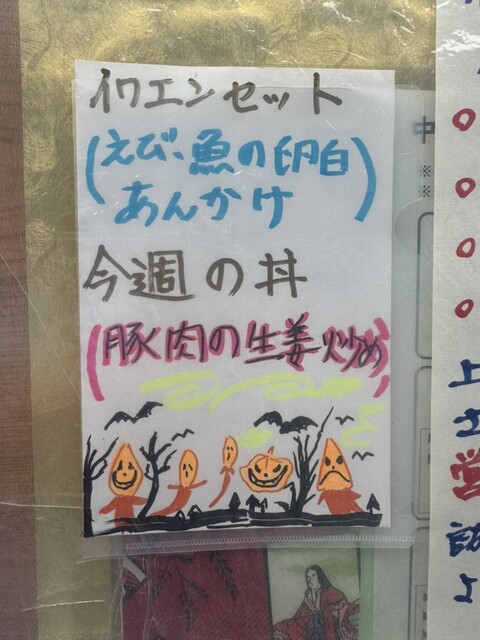 イワエンセット
(えび、魚の卵白
あんかけ)
今週の丼
(豚肉の生姜炒め)
中
※
※
上
営
よ